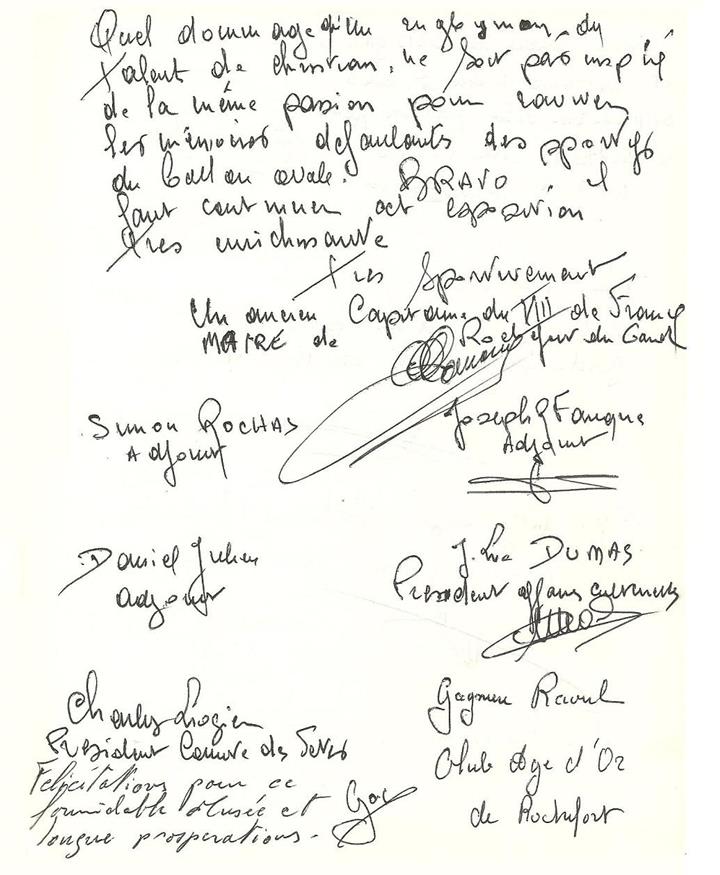 Quel dommage qu'un englyman, du
talent de christian, ne soit pas inspiré
de la même passion pour raviver
les mémoires defaillants des sportifs
du ballon ovale. BRAVO il
faut continuer cet exposition
très enrichissante
très sportivement
Un ancien Capitaine du VIII de France
MAIRE de Rochefort du Gard
Simon ROCHAS
Adjoint
Joseph
Adjoint
Daniel Julien
adjoint
J. Luc DUMAS
President affaires culturelles
Charles Liogier
President Comité des Fetes
Felicitations pour ce
formidable Musée et
longue prosperations.
Raoul
Club Age d'Or
de Rochefort